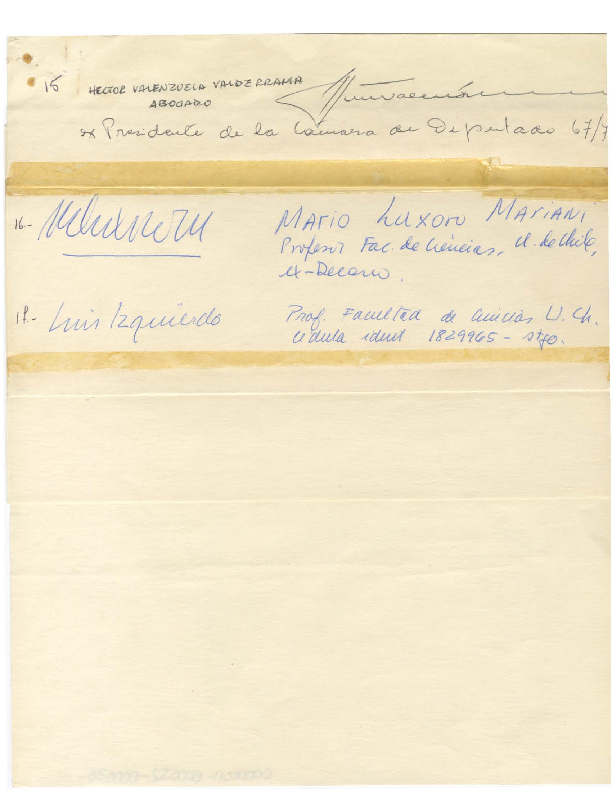 15 HECTOR VALENZUELA VALDERRAMA
ABOGADO
ex Presidente de la Cámara de Diputado 67/7
16.- MARIO LUXORO MARIANI
Profesor Fac. de Ciencias, U. de Chile,
ex-Decano.
18.- Luis Izquierdo Prof. Facultad de Ciencias U. Ch.
cédula ident 1829965 - stgo.